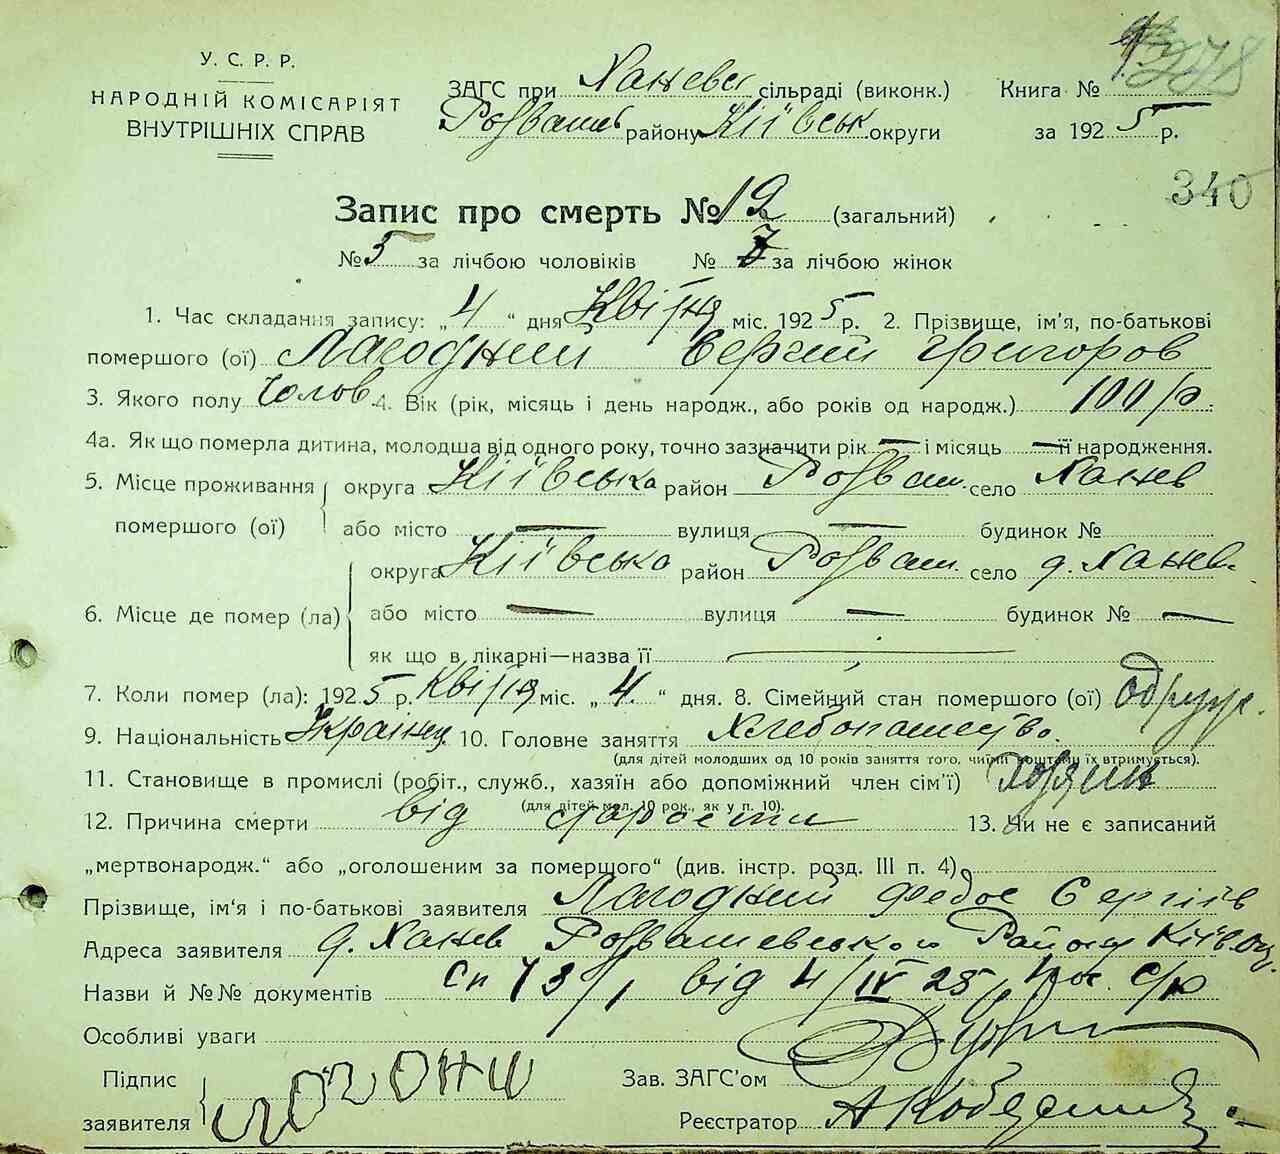 У. С. Р. Р.
НАРОДНІЙ КОМІСАРІЯТ
ВНУТРІШНІХ СПРАВ
ЗАГС при Ханевс сільраді (виконк.)
Розважів району Київськ округи
Книга №
за 1925 р.
278
340
Запис про смерть № 12 (загальний)
№ 5 за лічбою чоловіків № 7 за лічбою жінок
1. Час складання запису: „4“ дня Квітня міс. 1925 р. 2. Прізвище, ім'я, по-батькові
помершого (ої) Лагодний Сергий Григоров
3. Якого полу Чолов. 4. Вік (рік, місяць і день народж., або років од народж.) 100 р.
4а. Як що померла дитина, молодша від одного року, точно зазначити рік — і місяць — її народження.
5. Місце проживання помершого (ої) округа Київська район Розваж. село Ханев
або місто — вулиця — будинок №
6. Місце де помер (ла) округа Київська район Розваж. село д. Ханев.
або місто — вулиця — будинок № —
як що в лікарні—назва її —
7. Коли помер (ла): 1925 р. Квітня міс. „4.“ дня. 8. Сімейний стан помершого (ої) одруж.
9. Національність Українец 10. Головне заняття Хлебопашество.
(для дітей молодших од 10 років заняття того, чиїми коштами їх втримується).
11. Становище в промислі (робіт., служб., хазяїн або допоміжний член сім'ї) хозяин
(для дітей мол. 10 рок., як у п. 10).
12. Причина смерти від старости 13. Чи не є записаний
„мертвонародж.“ або „оголошеним за померщого“ (див. інстр. розд. III п. 4)
Прізвище, ім'я і по-батькові заявителя Лагодний Федос Сергіїв
Адреса заявителя д. Ханев Розважевського Району Київ
Назви й №№ документів від 4/IV 25 с/р
Особливі уваги
Підпис
заявителя
Зав. ЗАГС'ом
Реєстратор